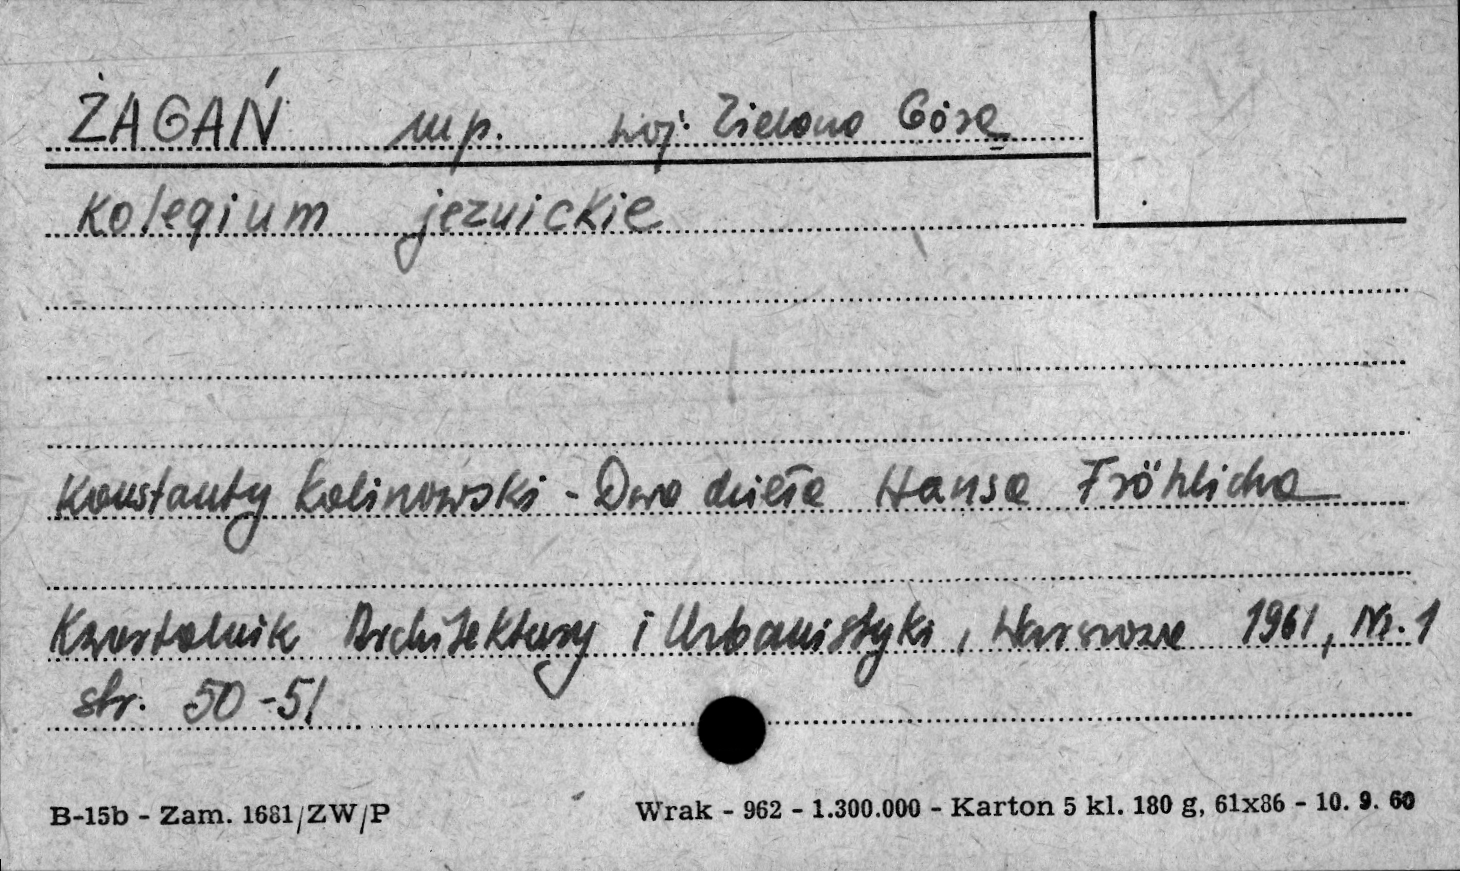 ŻAGAŃ mp. woj. Zielona Góra
Kolegium jezuickie
Konstanty Kalinowski - Dwa dzieła Hansa Fröhlicha
Kwartalnik Architektury i Urbanistyki, Warszawa 1961, Nr. 1
str. 50-51
B-15b - Zam. 1681/ZW/P Wrak - 962 - 1.300.000 - Karton 5 kl. 180 g, 61x86 - 10. 9. 60